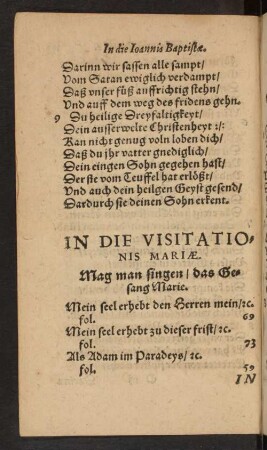 In die Ioannis Baptistæ.
Darinn wir sassen alle sampt/
Vom Satan ewiglich verdampt/
Daß vnser füß auffrichtig stehn/
Vnd auff dem weg des fridens gehn.
9 Du heilige Dreyfaltigkeyt/
Dein ausserwelte Christenheyt :/:
Kan nicht genug voln loben dich/
Daß du jhr vatter gnediglich/
Dein eingen Sohn gegeben hast/
Der sie vom Teuffel hat erlößt/
Vnd auch dein heilgen Geyst gesend/
Dardurch sie deinen Sohn erkent.
IN DIE VISITATIO-
NIS MARIÆ.
Mag man singen/ das Ge-
sang Marie.
Mein seel erhebt den Herren mein/ ꝛc.
fol. 69
Mein seel erhebt zu dieser frist/ ꝛc.
fol. 73
Als Adam im Paradeys/ ꝛc.
fol. 59
IN